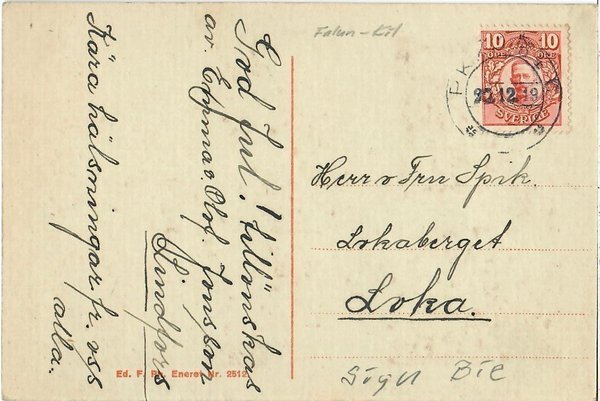 God Jul! tillönskas
av. Edma o Olof. Jonsson
Lindfors
Kära hälsningar fr. oss
alla.
Falun - Kil
10 10
ÖRE ÖRE
SVERIGE
PKXP
12 19
Herr o Fru Spik.
Lokaberget
Loka.
Sign
Ed. F. Eneret Nr. 2512